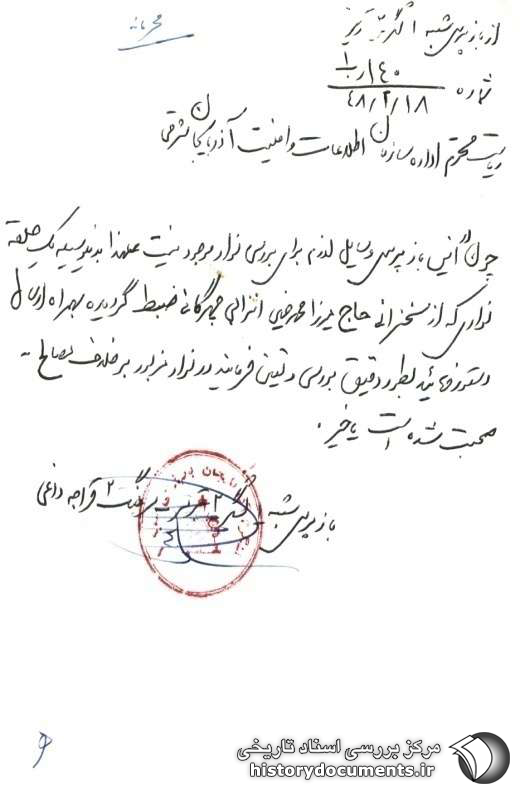 محرمانه
از بازپرسی شعبه ۱ لشگر ۲ تبریز
شماره ۱۴۰/ب/۱
۴۸/۲/۱۸
ریاست محترم اداره سازمان اطلاعات و امنیت آذربایجان شرقی
چون در آژانس بازپرسی وسایل لازم برای بررسی نوار موجود نیست علیهذا بدینوسیله یک حلقه
نواری که از سخنرانی حاج میرزا محمد انزابی چهرگانی ضبط گردیده بهمراه ارسال
دستور فرمائید بطور دقیق بررسی و تعیین فرمایند در نوار مزبور بر خلاف مصالح
صحبت شده است یا خیر.
بازپرس شعبه ۱ لشگر ۲ تبریز - سرگرد ۲ قراجه داغی
مرکز بررسی اسناد تاریخی
historydocuments.ir